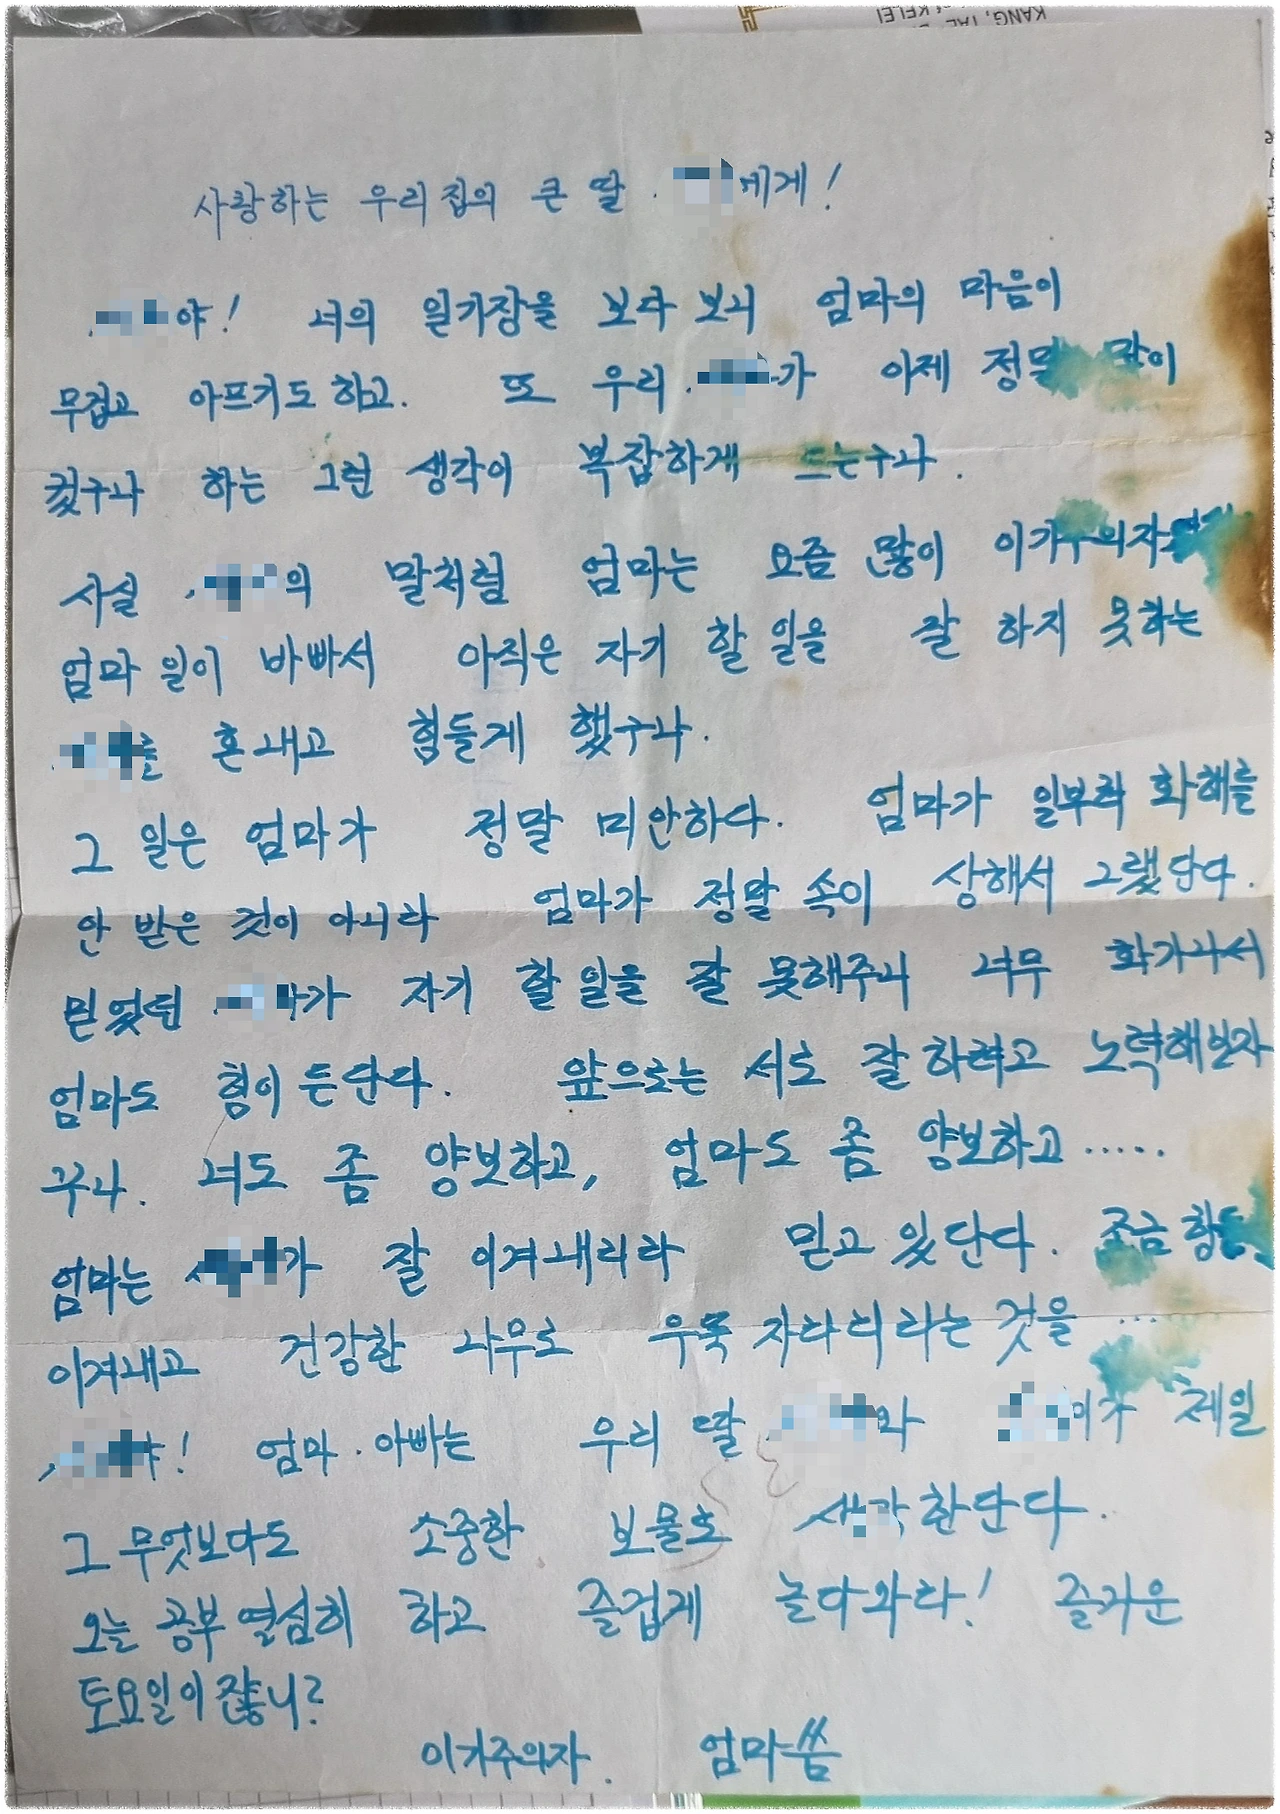 KANG, TAE
KELEI
사랑하는 우리집의 큰 딸 에게!
야! 너의 일기장을 보다 보니 엄마의 마음이
무겁고 아프기도 하고. 또 우리 가 이제 정말 많이
컸구나 하는 그런 생각이 복잡하게 드는구나.
사실 의 말처럼 엄마는 요즘 많이 이기주의자
엄마 일이 바빠서 아직은 자기 할 일을 잘 하지 못하는
를 혼내고 힘들게 했구나.
그 일은 엄마가 정말 미안하다. 엄마가 일부러 화해를
안 받은 것이 아니라 엄마가 정말 속이 상해서 그랬단다.
믿었던 가 자기 할 일을 잘 못해주니 너무 화가나서
엄마도 힘이 든단다. 앞으로는 서로 잘 하려고 노력해보자
꾸나. 너도 좀 양보하고, 엄마도 좀 양보하고.....
엄마는 가 잘 이겨내리라 믿고 있단다. 조금 힘들
이겨내고 건강한 나무로 우뚝 자라리라는 것을...
야! 엄마. 아빠는 우리 딸 와 이가 제일
그 무엇보다도 소중한 보물로 생각한단다.
오늘 공부 열심히 하고 즐겁게 놀다와라! 즐거운
토요일이잖니?
이기주의자. 엄마씀